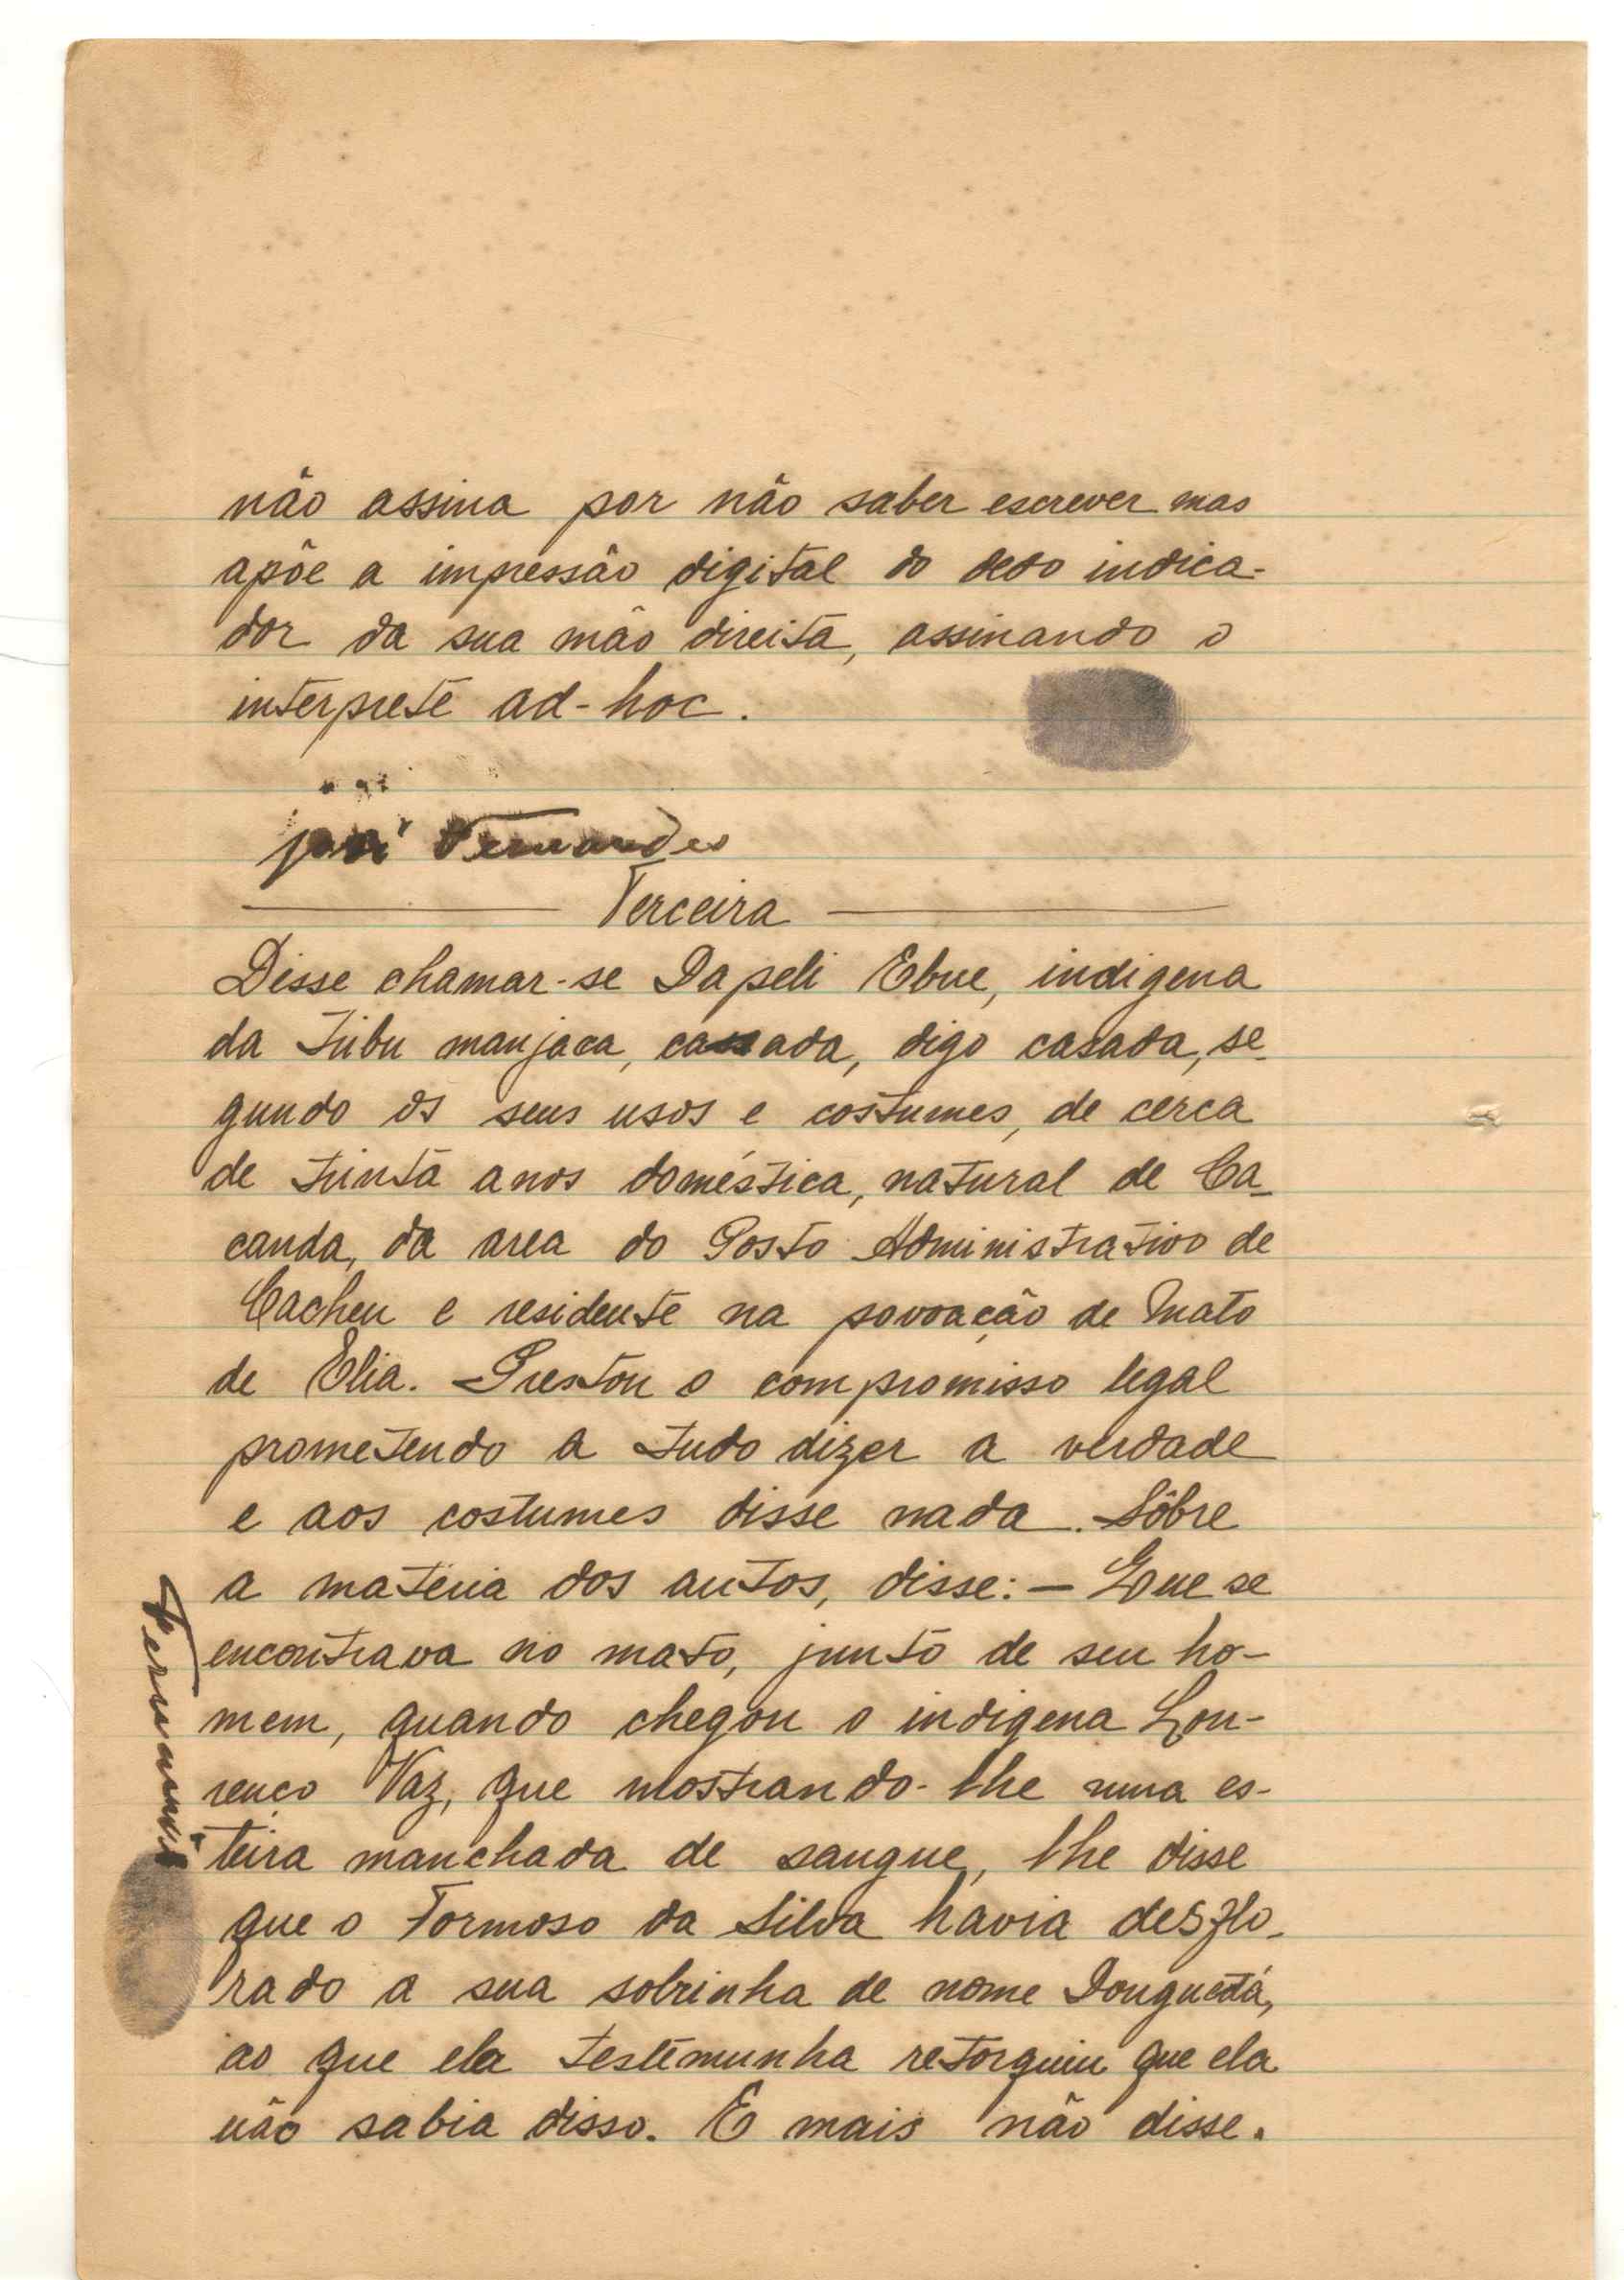 não assina por não saber escrever mas
apõe a impressão digital do dedo indica-
dor da sua mão direita, assinando o
interprete ad-hoc.
José Fernandes
Terceira
Disse chamar-se Dapeli Ebue, indigena
da tribu manjaca, cassada, digo casada, se-
gundo os seus usos e costumes, de cerca
de trinta anos doméstica, natural de Ca-
canda, da area do Posto Administrativo de
Cacheu e residente na povoação de Mato
de Elia. Prestou o compromisso legal
prometendo a tudo dizer a verdade
e aos costumes disse nada. Sôbre
a matéria dos autos, disse: — Que se
encontrava no mato, junto de seu ho-
mem, quando chegou o indigena Lou-
renço Vaz, que mostrando-lhe uma es-
teira manchada de sangue, lhe disse
que o Formoso da Silva havia desflo-
rado a sua sobrinha de nome Donguetá,
ao que ela testemunha retorquiu que ela
não sabia disso. E mais não disse.
Fernandes